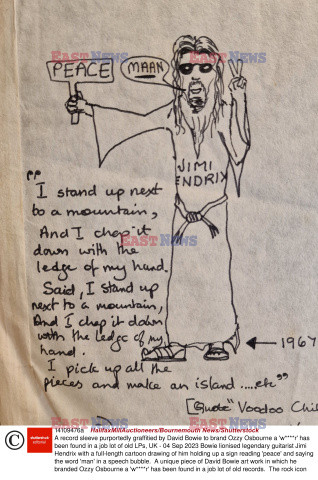 PEACE
MAAN
EAST NEWS
EAST NEWS
JIMI
ENDRIX
"I stand up next
to a mountain,
And I chop it
down with the
ledge of my hand.
Said, I stand up
next to a mountain,
And I chop it down
with the ledge of my
hand.
I pick up all the
pieces and make an island ....etc"
EAST NEWS
EAST NEWS
← 1967
[Quote "Voodoo Chil
14109476a HalifaxMillAuctioneers/Bournemouth News/Shutterstock
shutterstock
A record sleeve purportedly graffitied by David Bowie to brand Ozzy Osbourne a 'w****r' has
been found in a job lot of old LPs, UK - 04 Sep 2023 Bowie lionised legendary guitarist Jimi
Hendrix with a full-length cartoon drawing of him holding up a sign reading 'peace' and saying
the word 'man' in a speech bubble. A unique piece of David Bowie art work in which he
branded Ozzy Osbourne a 'w****r' has been found in a job lot of old records. The rock icon